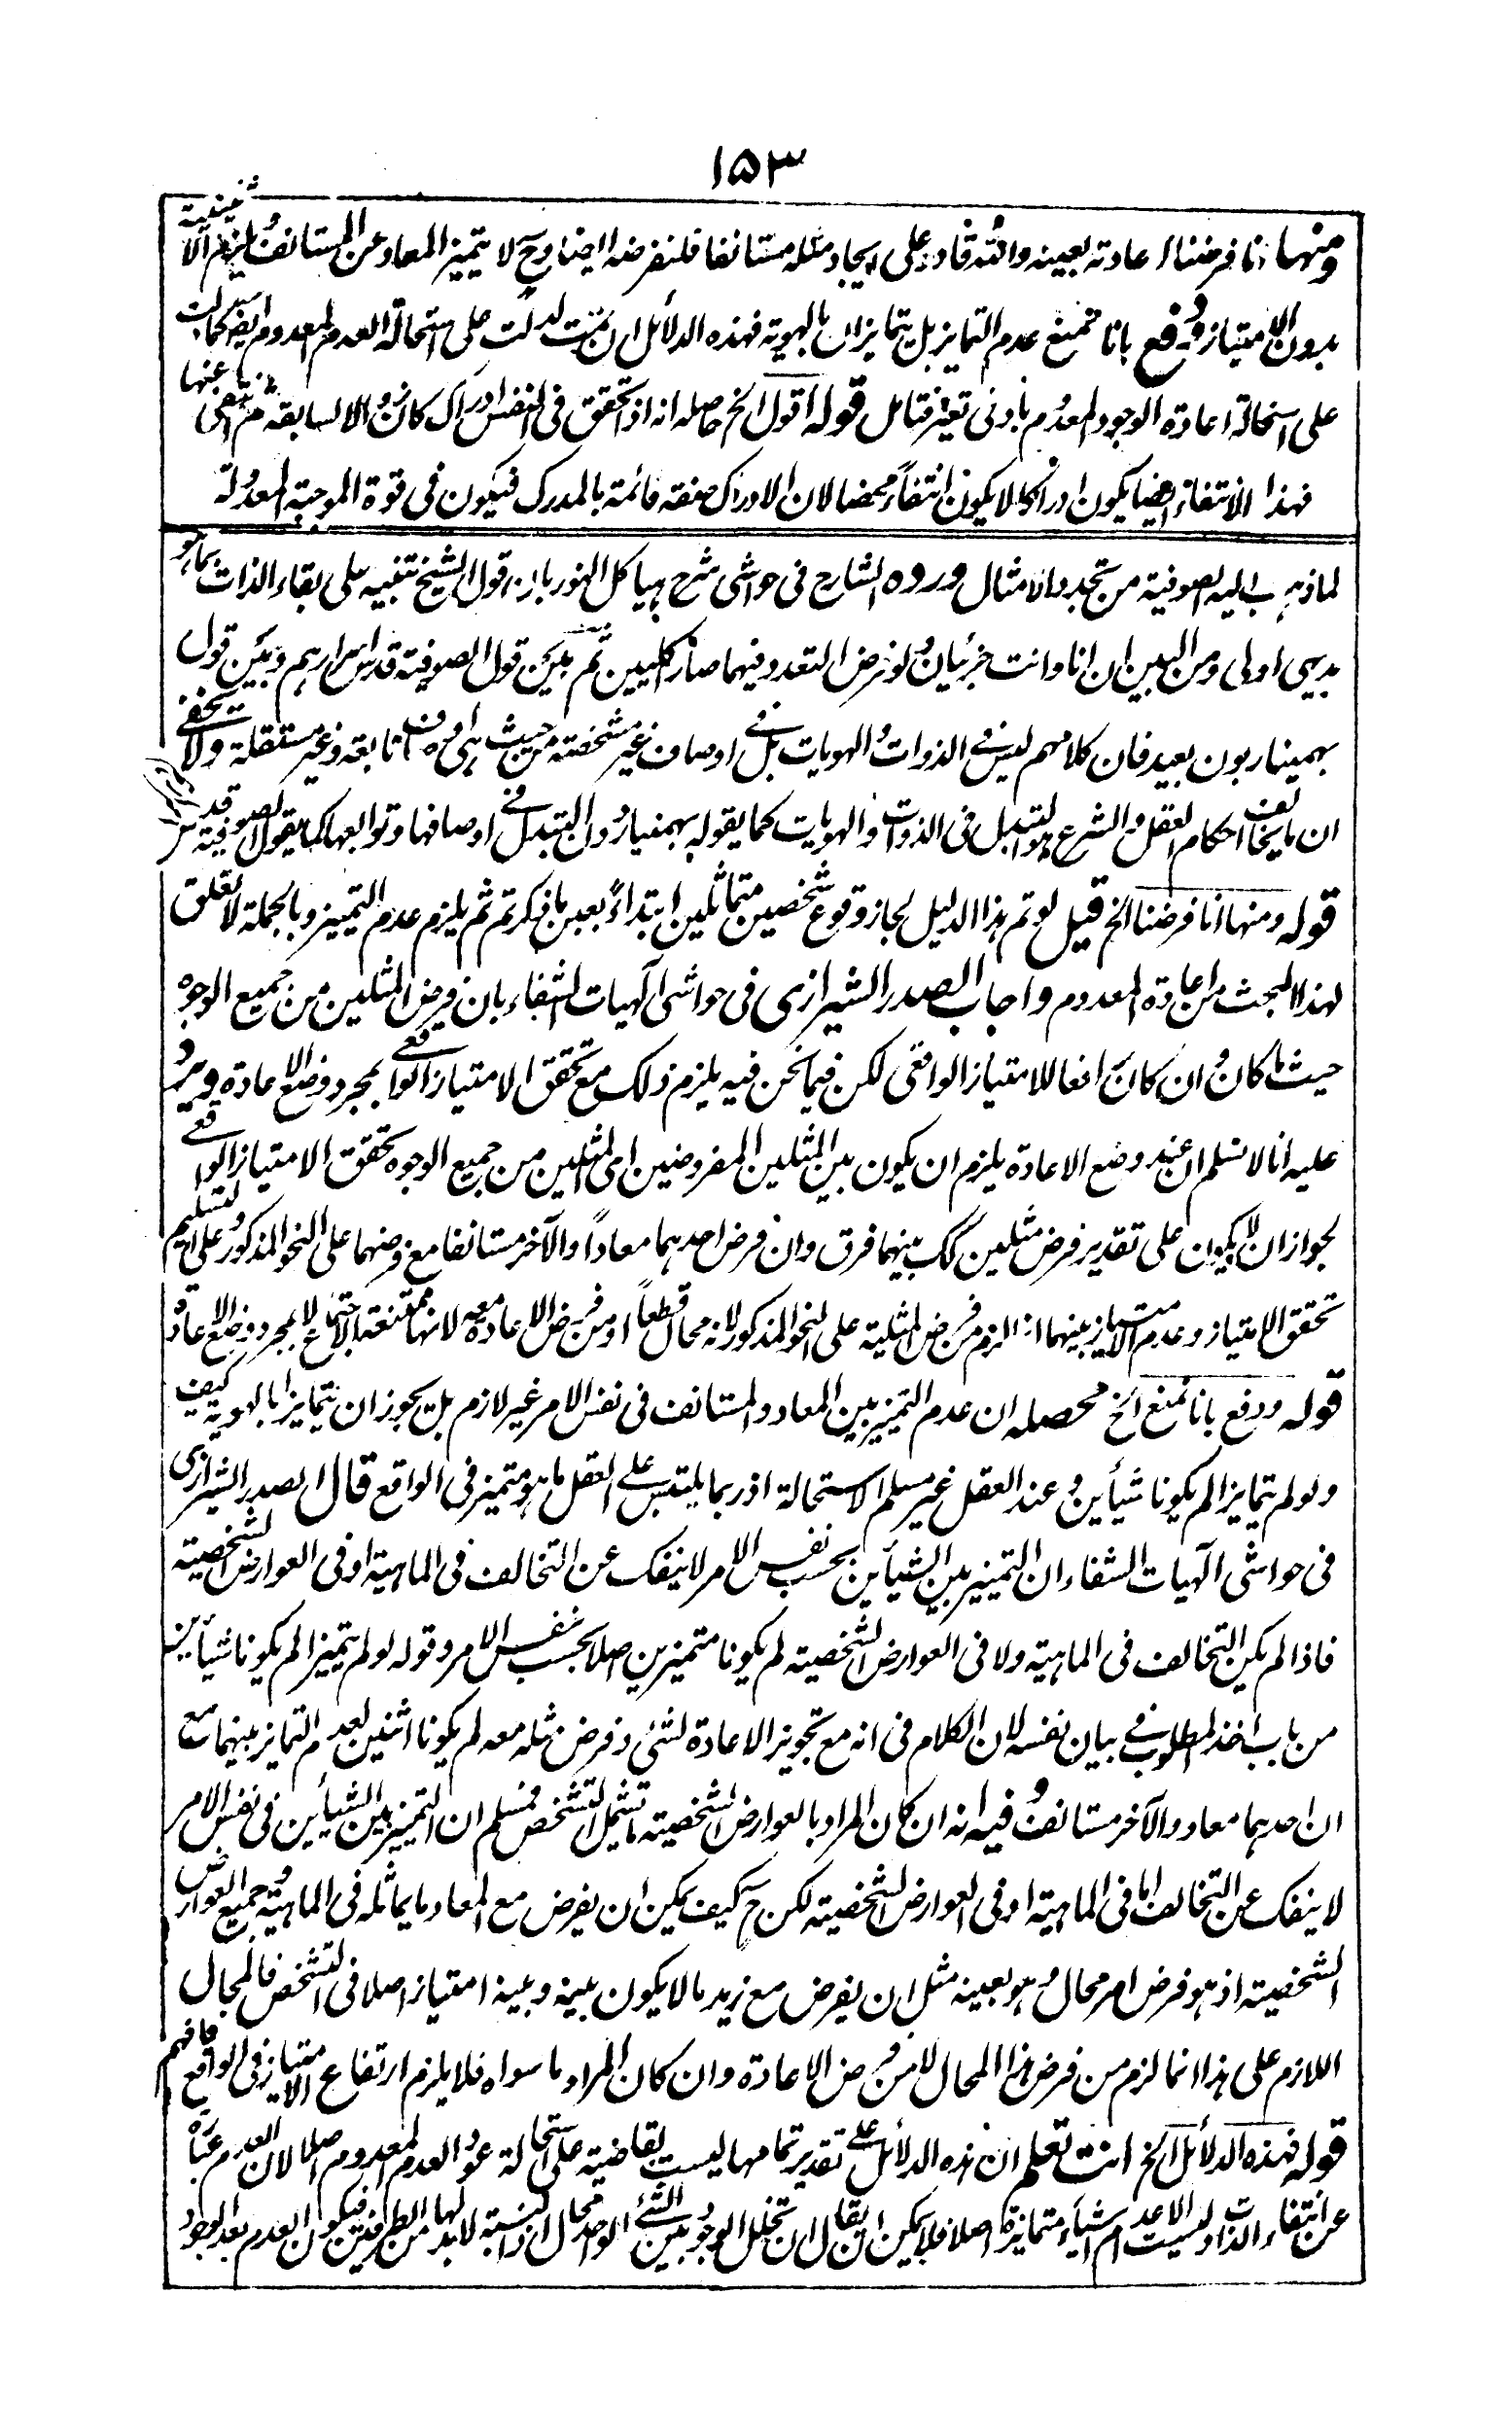 ١٥٣
ومنها انا فرضنا اعادته بعينه والله قادر على ايجاد مثله مستانفا فلنفرضه ايضا وح لا يتميز المعاد عن المستانف ويلزم الاثنينية
بدون الامتياز ودفع بانا نمنع عدم التمايز بل يتمايزان بالهوية فهذه الدلائل ان تمت لدلت على استحالة العدم المعدوم ايضا كما استدلت
على استحالة اعادة الوجود المعدوم بادنى تغيير فتامل قوله اقول الخ حاصله انه اذا تحقق فى النفس ادراك كان زوالا لسابقه ثم انتفى عنها
فهذا الانتفاء ايضا يكون ادراكا لا يكون انتفاءً محضا لان الادراك صفة قائمة بالمدرك فيكون فى قوة الموجبة المعدولة
لما ذهب اليه الصوفية من تجدد الامثال ورده الشارح فى حواشى شرح هياكل النور بان قول الشيخ تنبيه على بقاء الذات بما هو
بديهى اولى ومن البين ان انا وانت جزئيان ولو فرض التعدد فيهما صارا كليين ثم بين قول الصوفية قدس اسرارهم وبين قول
بهمنيار بون بعيد فان كلامهم ليس فى الذوات والهويات بل فى اوصاف غير مشخصة من حيث هى اوصاف تابعة وغير مستقلة ولا يخفى
ان ما يخالف احكام العقل والشرع هو التبدل فى الذوات والهويات كما يقوله بهمنيار دون التبدل فى اوصافها وتوابعها كما يقول الصوفية قدس سرهم
قوله ومنها انا فرضنا الخ قيل لو تم هذا الدليل لجاز وقوع شخصين متماثلين ابتداءً بعين ما ذكرتم ثم يلزم عدم التمييز وبالجملة لا تعلق
لهذا المبحث من اعادة المعدوم واجاب الصدر الشيرازى فى حواشى الهيات الشفاء بان فرض المثلين من جميع الوجوه
حيث ما كان وان كان رافعا للامتياز الواقعى لكن فيما نحن فيه يلزم ذلك مع تحقق الامتياز الواقعى بمجرد وضع الاعادة ويرد
عليه انا لا نسلم ان عند وضع الاعادة يلزم ان يكون بين المثلين المفروضين اى المثلين من جميع الوجوه تحقق الامتياز الواقعى
لجواز ان لا يكون على تقدير فرض مثلين كك بينهما فرق وان فرض احدهما معاداً والآخر مستانفا مع فرضهما على النحو المذكور على تسليم
تحقق الامتياز وعدم الامتياز بينهما انما لزم من فرض المثلية على النحو المذكور لانه محال قطعاً او من فرض الاعادة معه لانها ممتنعة الاجتماع لا بمجرد وضع الاعادة
قوله ودفع بانا نمنع الخ محصله ان عدم التميز بين المعاد والمستانف فى نفس الامر غير لازم بل يجوز ان يتمايزا بالهوية كيف
ولو لم يتمايزا لم يكونا شيأين وعند العقل غير مسلم الاستحالة اذ ربما يلتبس على العقل ما هو متميز فى الواقع قال الصدر الشيرازى
فى حواشى الهيات الشفاء ان التمييز بين الشيأين بحسب نفس الامر لا ينفك عن التخالف فى الماهية او فى العوارض الشخصية
فاذا لم يكن التخالف فى الماهية ولا فى العوارض الشخصية لم يكونا متميزين اصلا بحسب نفس الامر وقوله لو لم يتميزا لم يكونا شيأين
من باب اخذ المطلوب فى بيان نفسه لان الكلام فى انه مع تجويز الاعادة لشئى وفرض مثله معه لم يكونا اثنين لعدم التمايز بينهما مع
ان احدهما معاد والآخر مستانف وفيه انه ان كان المراد بالعوارض الشخصية ما تشمل التشخص فمسلم ان التميز بين الشيأين فى نفس الامر
لا ينفك عن التخالف اما فى الماهية او فى العوارض الشخصية لكن ح كيف يمكن ان يفرض مع المعاد ما يماثله فى الماهية وجميع العوارض
الشخصية اذ هو فرض امر محال وهو بعينه مثل ان يفرض مع زيد ما لا يكون بينه وبينه امتياز اصلا فى التشخص فالمحال
اللازم على هذا انما لزم من فرض هذا المحال لا من فرض الاعادة وان كان المراد ما سواه فلا يلزم ارتفاع الامتياز فى الواقع فافهم
قوله فهذه الدلائل الخ انت تعلم ان هذه الدلائل على تقدير تمامها ليست بقاضية على استحالة عود العدم المعدوم اصلا لان العدم عبارة
عن انتفاء الذات وليست الاعدام اشياء متمايزة اصلا فلا يمكن ان يقال ان تخلل الوجود بين الشئى الواحد محال اذ النسبة لا بد لها من الطرفين فيكون العدم بعد الوجود